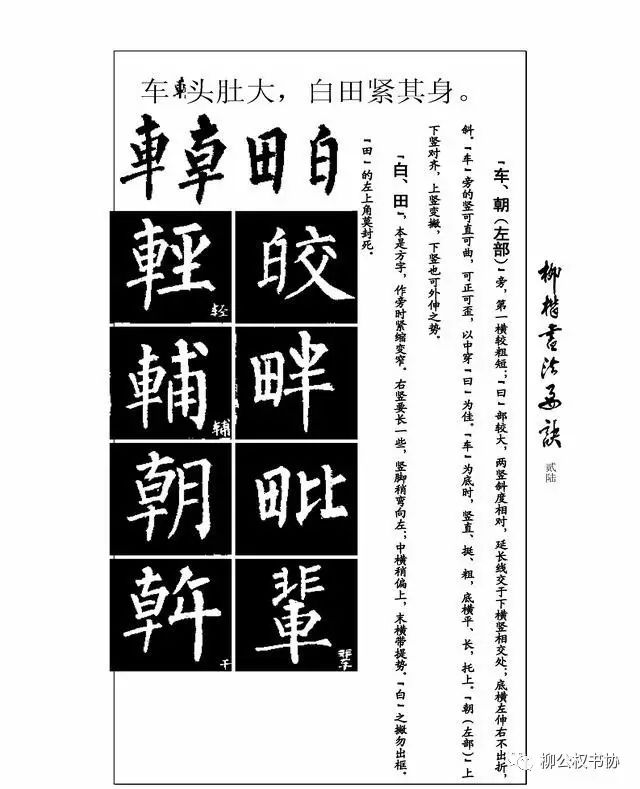 车𠦝头肚大，白田紧其身。
車𠦝田白
輕 轻
皎
輔 辅
畔
朝
毗
乾 干
輩 辈
"车、朝（左部）"旁，第一横较粗短；"曰"部较大，两竖斜度相对，延长线交于下横竖相交处；底横左伸右不出折，
斜。"车"旁的竖可直可曲，可正可歪，以中穿"曰"为佳。"车"为底时，竖直、挺、粗，底横平、长，托上。"朝（左部）"上
下竖对齐，上竖变撇，下竖也可外伸之势。
"白、田"，本是方字，作旁时紧缩变窄。右竖要长一些，竖脚稍弯向左；中横稍偏上，末横带提势。"白"之撇勿出框。
"田"的左上角莫封死。
柳楷书法要诀
贰陆
柳公权书协